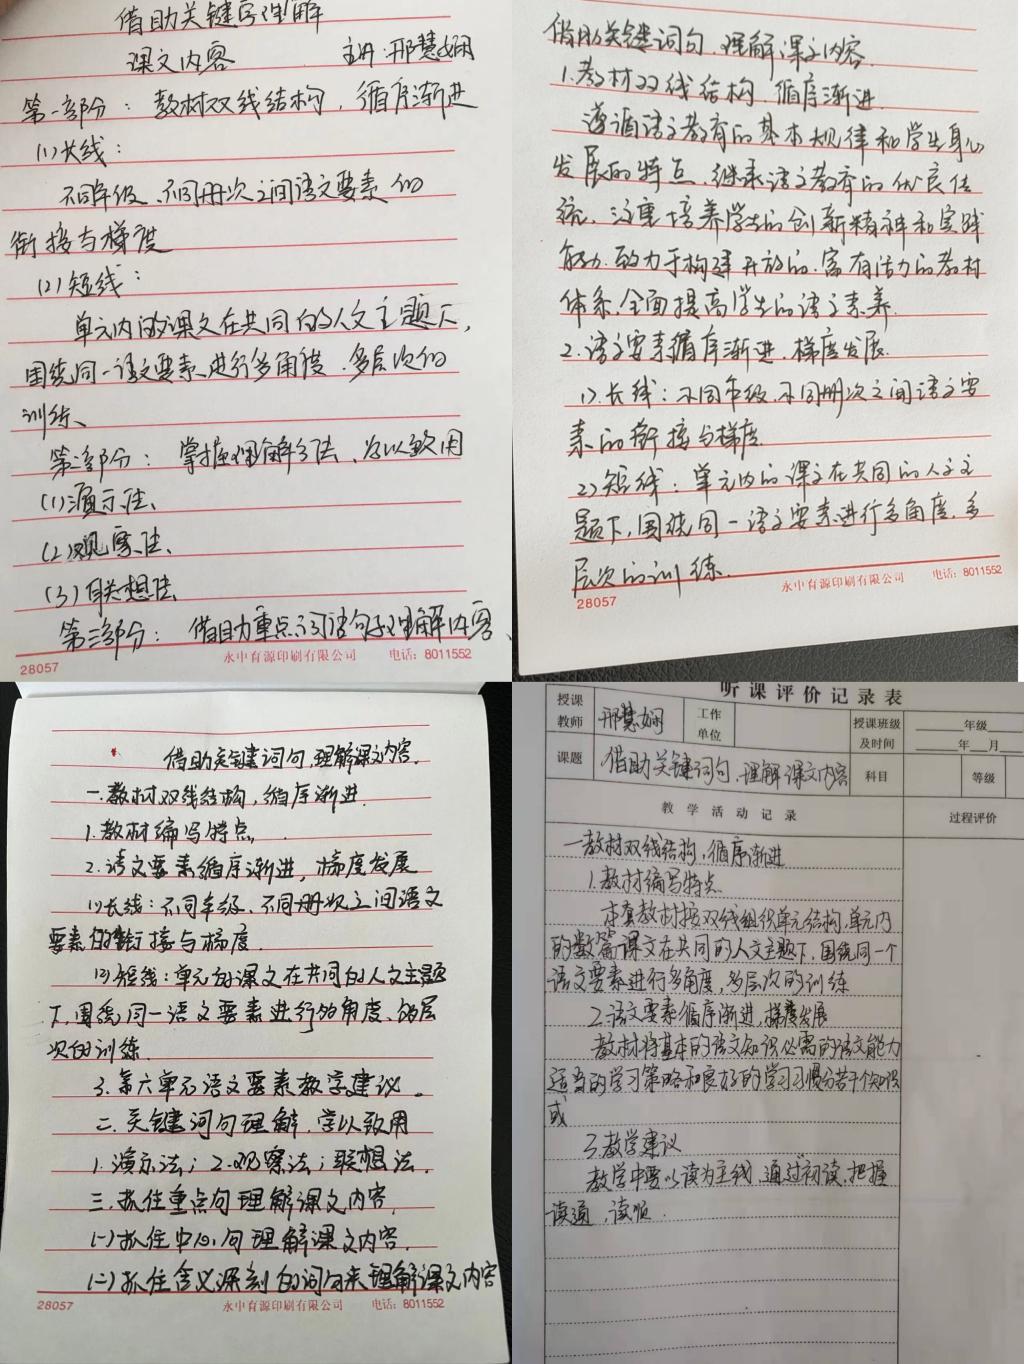 借助关键字理解
课文内容 主讲:邢慧娴
第一部分:教材双线结构,循序渐进
(1)长线:
不同年级、不同册次之间语文要素的
衔接与梯度
(2)短线:
单元内的课文在共同的人文主题下,
围绕同一语文要素、进行多角度、多层次的
训练、
第二部分:掌握理解方法、学以致用
(1)演示法、
(2)观察法、
(3)联想法
第三部分:借助重点词语句子理解内容、
28057 永中育源印刷有限公司 电话:8011552
借助关键词句,理解课文内容.
1.教材双线结构,循序渐进.
遵循语文教育的基本规律和学生身心
发展的特点,继承语文教育的优良传
统,注重培养学生的创新精神和实践
能力.致力于构建开放的,富有活力的教材
体系,全面提高学生的语文素养.
2.语文要素循序渐进,梯度发展.
1).长线:不同年级,不同册次之间语文要
素的衔接与梯度
2)短线:单元内的课文在共同的人文主
题下,围绕同一语文要素进行多角度,多
层次的训练.
28057 永中育源印刷有限公司 电话:8011552
借助关键词句,理解课文内容.
一.教材双线结构,循序渐进.
1.教材编写特点.
2.语文要素循序渐进,梯度发展
(1)长线:不同年级、不同册次之间语文
要素的衔接与梯度.
(2)短线:单元的课文在共同的人文主题
下,围绕同一语文要素进行的角度、的层
次的训练.
3.第六单元语文要素教学建议。
二.关键词句理解,学以致用
1.演示法;2.观察法;联想法.
三.抓住重点句理解课文内容.
(一)抓住中心句理解课文内容.
(二)抓住含义深刻的词句来理解课文内容
28057 永中育源印刷有限公司 电话:8011552
听课评价记录表
授课教师 邢慧娴 工作单位 授课班级及时间 年级 年 月
课题 借助关键词句,理解课文内容 科目 等级
教学活动记录 过程评价
一教材双线结构,循序渐进
1.教材编写特点
本套教材按双线组织单元结构,单元内
的数篇课文在共同的人文主题下,围绕同一个
语文要素进行多角度,多层次的训练
2.语文要素循序渐进,梯度发展
教材将基本的语文知识必需的语文能力
适当的学习策略和良好的学习习惯分若干个知识
或
3.教学建议
教学中要以读为主线,通过初读,把握
读通,读顺.